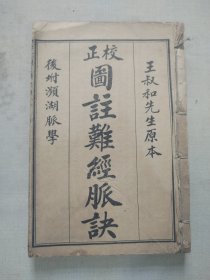 王叔和先生原本
校正
圖註難經脈訣
後附瀕湖脈學